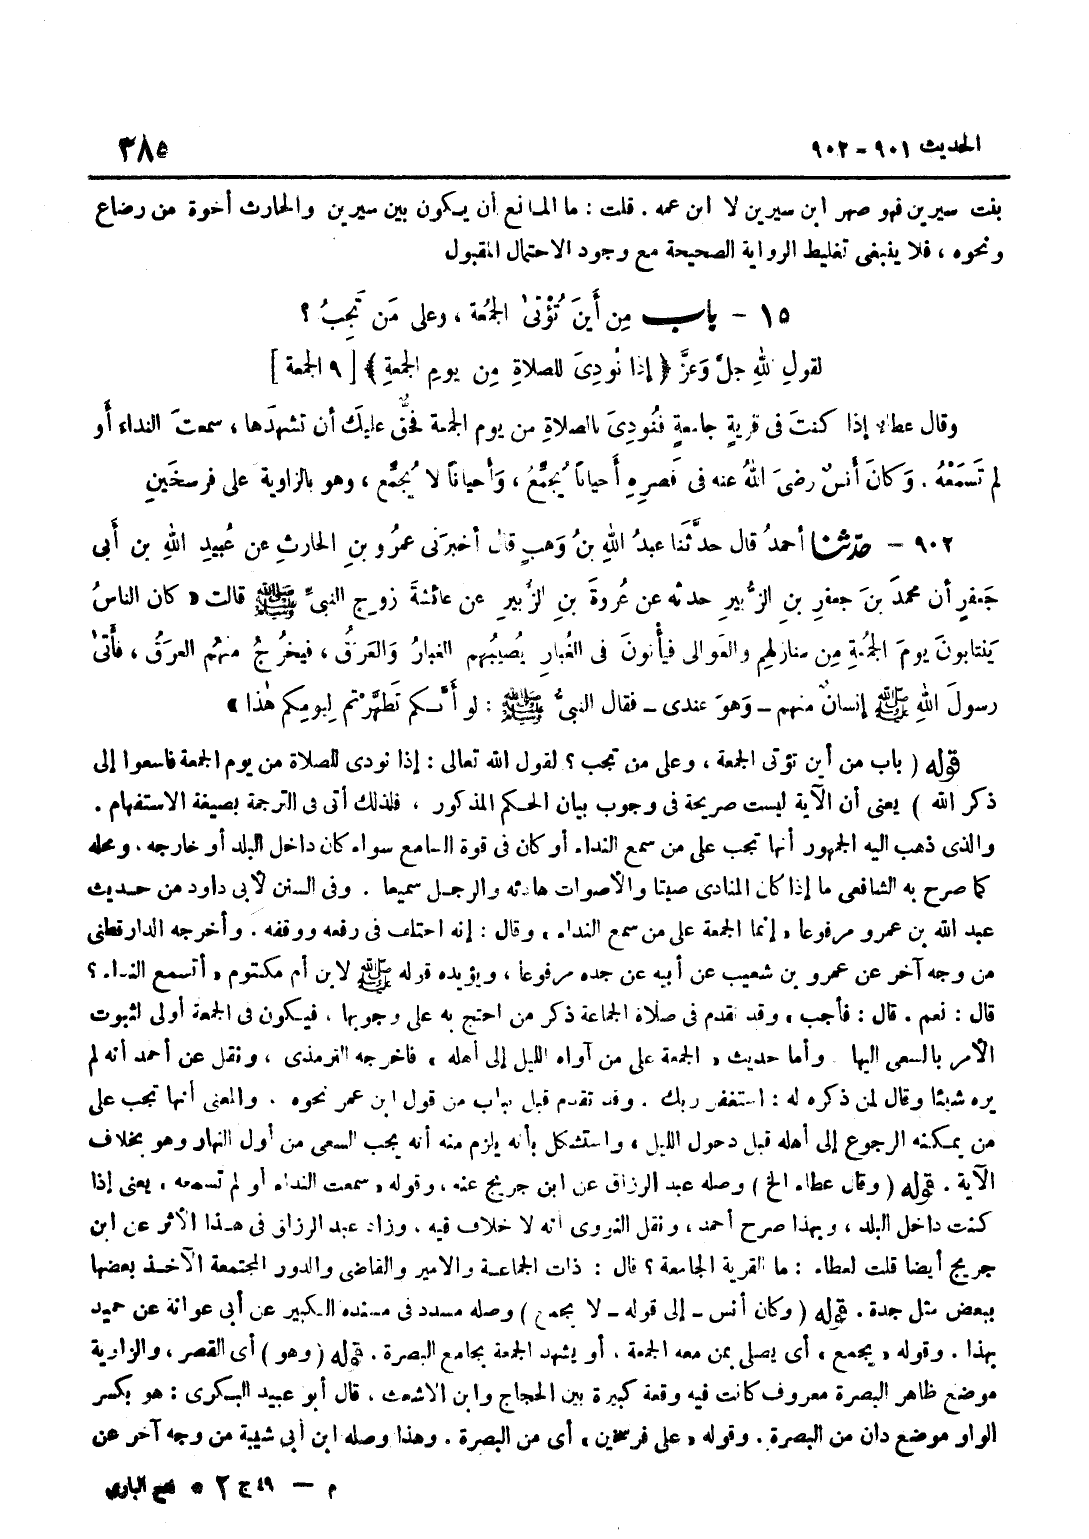 الحديث ٩٠١ - ٩٠٢
٣٨٥
بنت سيرين فهو صهر ابن سيرين لا ابن عمه . قلت : ما المانع أن يكون بين سيرين والحارث أخوة من رضاع
ونحوه ، فلا ينبغى تغليط الرواية الصحيحة مع وجود الاحتمال المقبول
١٥ - باب مِن أَينَ تُؤْتىٰ الجمُعة ، وعلى مَن تَجِبُ ؟
لقولِ اللهِ جلَّ وَعزَّ ﴿ إِذا نُودِىَ للصلاةِ مِن يومِ الجمعةِ ﴾ [ ٩ الجمعة ]
وقال عطاء إذا كنتَ فى قريةٍ جامعةٍ فنُودِىَ بالصلاةِ من يوم الجمعة فحقٌّ عليكَ أن تشهدَها ، سمعتَ النداء أَو
لم تَسمَعْهُ . وَكانَ أَنسٌ رضىَ اللهُ عنه فى قصرِهِ أحياناً يُجمِّعُ ، وَأحياناً لا يُجمِّع ، وهو بالزاوية على فرسخَينِ
٩٠٢ - حدثنا أحمدُ قال حدثَنا عبدُ اللهِ بنُ وَهبٍ قال أخبرَنى عمرُو بنِ الحارثِ عن عُبيدِ اللهِ بن أَبى
جَعفرٍ أن محمدَ بنَ جعفرِ بنِ الزُّبيرِ حدثه عن عُروةَ بنِ الزُّبيرِ عن عائشةَ زوجِ النبىِّ ﷺ قالت « كان الناسُ
يَنتابونَ يومَ الجمُعةِ مِن منازلهِم والعَوالى فيأتونَ فى الغُبارِ يُصيبُهم الغبارُ وَالعَرَقُ ، فيخرُجُ منهُم العرَقُ ، فأَتىٰ
رسولَ اللهِ ﷺ إنسانٌ منهم - وَهوَ عندى - فقال النبىُّ ﷺ : لو أنَّكم تَطهَّرْتم لِيومِكم هٰذا »
قوله ( باب من أين تؤتى الجمعة ، وعلى من تجب ؟ لقول الله تعالى : إذا نودى للصلاة من يوم الجمعة فاسعوا إلى
ذكر الله ) يعنى أن الآية ليست صريحة فى وجوب بيان الحكم المذكور ، فلذلك أتى فى الترجمة بصيغة الاستفهام .
والذى ذهب اليه الجمهور أنها تجب على من سمع النداء أو كان فى قوة السامع سواء كان داخل البلد أو خارجه . ومحله
كما صرح به الشافعى ما إذا كان المنادى صيتا والأصوات هادئة والرجل سميعا . وفى السنن لأبى داود من حديث
عبد الله بن عمرو مرفوعا « إنما الجمعة على من سمع النداء » وقال : إنه اختلف فى رفعه ووقفه . وأخرجه الدارقطنى
من وجه آخر عن عمرو بن شعيب عن أبيه عن جده مرفوعا ، ويؤيده قوله ﷺ لابن أم مكتوم « أتسمع النداء ؟
قال : نعم . قال : فأجب » وقد تقدم فى صلاة الجماعة ذكر من احتج به على وجوبها ، فيكون فى الجمعة أولى لثبوت
الأمر بالسعى اليها . وأما حديث « الجمعة على من آواه الليل إلى أهله » فأخرجه الترمذى ، ونقل عن أحمد أنه لم
يره شيئا وقال لمن ذكره له : استغفر ربك . وقد تقدم قبل بباب من قول ابن عمر نحوه . والمعنى أنها تجب على
من يمكنه الرجوع إلى أهله قبل دخول الليل ، واستشكل بأنه يلزم منه أنه يجب السعى من أول النهار وهو بخلاف
الآية . قوله ( وقال عطاء الخ ) وصله عبد الرزاق عن ابن جريج عنه ، وقوله « سمعت النداء أو لم تسمعه » يعنى إذا
كنت داخل البلد ، وبهذا صرح أحمد ، ونقل النووى أنه لا خلاف فيه . وزاد عبد الرزاق فى هذا الأثر عن ابن
جريج أيضا قلت لعطاء : ما القرية الجامعة ؟ قال : ذات الجماعة والامير والقاضى والدور المجتمعة الآخذ بعضها
ببعض مثل جدة . قوله ( وكان أنس - إلى قوله - لا يجمع ) وصله مسدد فى مسنده الكبير عن أبى عوانة عن حميد
بهذا . وقوله « يجمع » أى يصلى بمن معه الجمعة ، أو يشهد الجمعة بجامع البصرة . قوله ( وهو ) أى القصر ، والزاوية
موضع ظاهر البصرة معروف كانت فيه وقعة كبيرة بين الحجاج وابن الاشعث . قال أبو عبيد البكرى : هو بكسر
الواو موضع دان من البصرة . وقوله « على فرسخين » أى من البصرة . وهذا وصله ابن أبى شيبة من وجه آخر عن
م - ٤٩ ج ٢ * فتح البارى